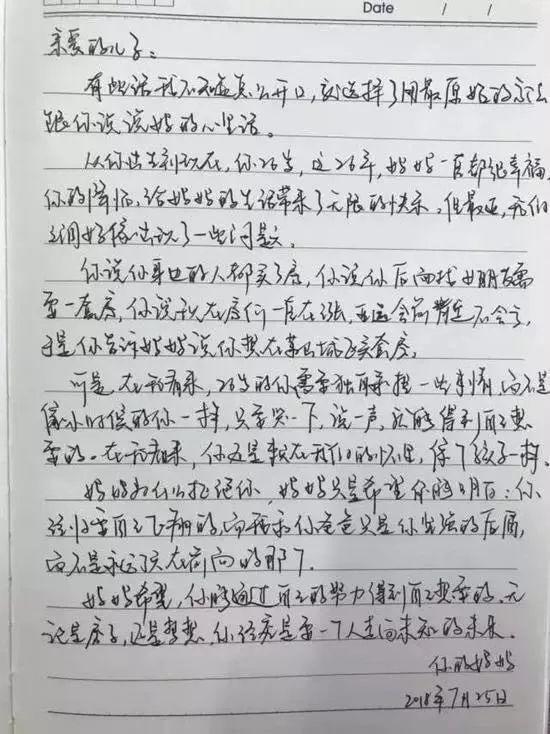 Date / /
亲爱的儿子：
有些话我不知道怎么开口，就选择了用最原始的方法
跟你说说妈妈的心里话。
从你出生到现在，你26岁，这26年，妈妈一直都很幸福，
你的降临，给妈妈的生活带来了无限的快乐，但最近，我们
之间好像出现了一些问题。
你说你身边的人都买了房，你说你后面找女朋友需
要一套房，你说现在房价一直在涨，
于是你告诉妈妈说你想在买套房。
可是，在我看来，26岁的你需要独自承担一些事情，而不是
像小时候的你一样，只要哭一下，说一声，就能得到自己想
要的。在我看来，你还是躲在我们的怀里，像个孩子一样。
妈妈为什么拒绝你，妈妈只是希望你能明白：你
终归要自己飞翔的，而我和你爸爸只是你坚强的后盾，
而不是永远顶在前面的那个。
妈妈希望，你能通过自己的努力得到自己想要的，无
论是房子，还是梦想，你终究是要一个人走向未知的未来。
你的妈妈
2018年7月25日